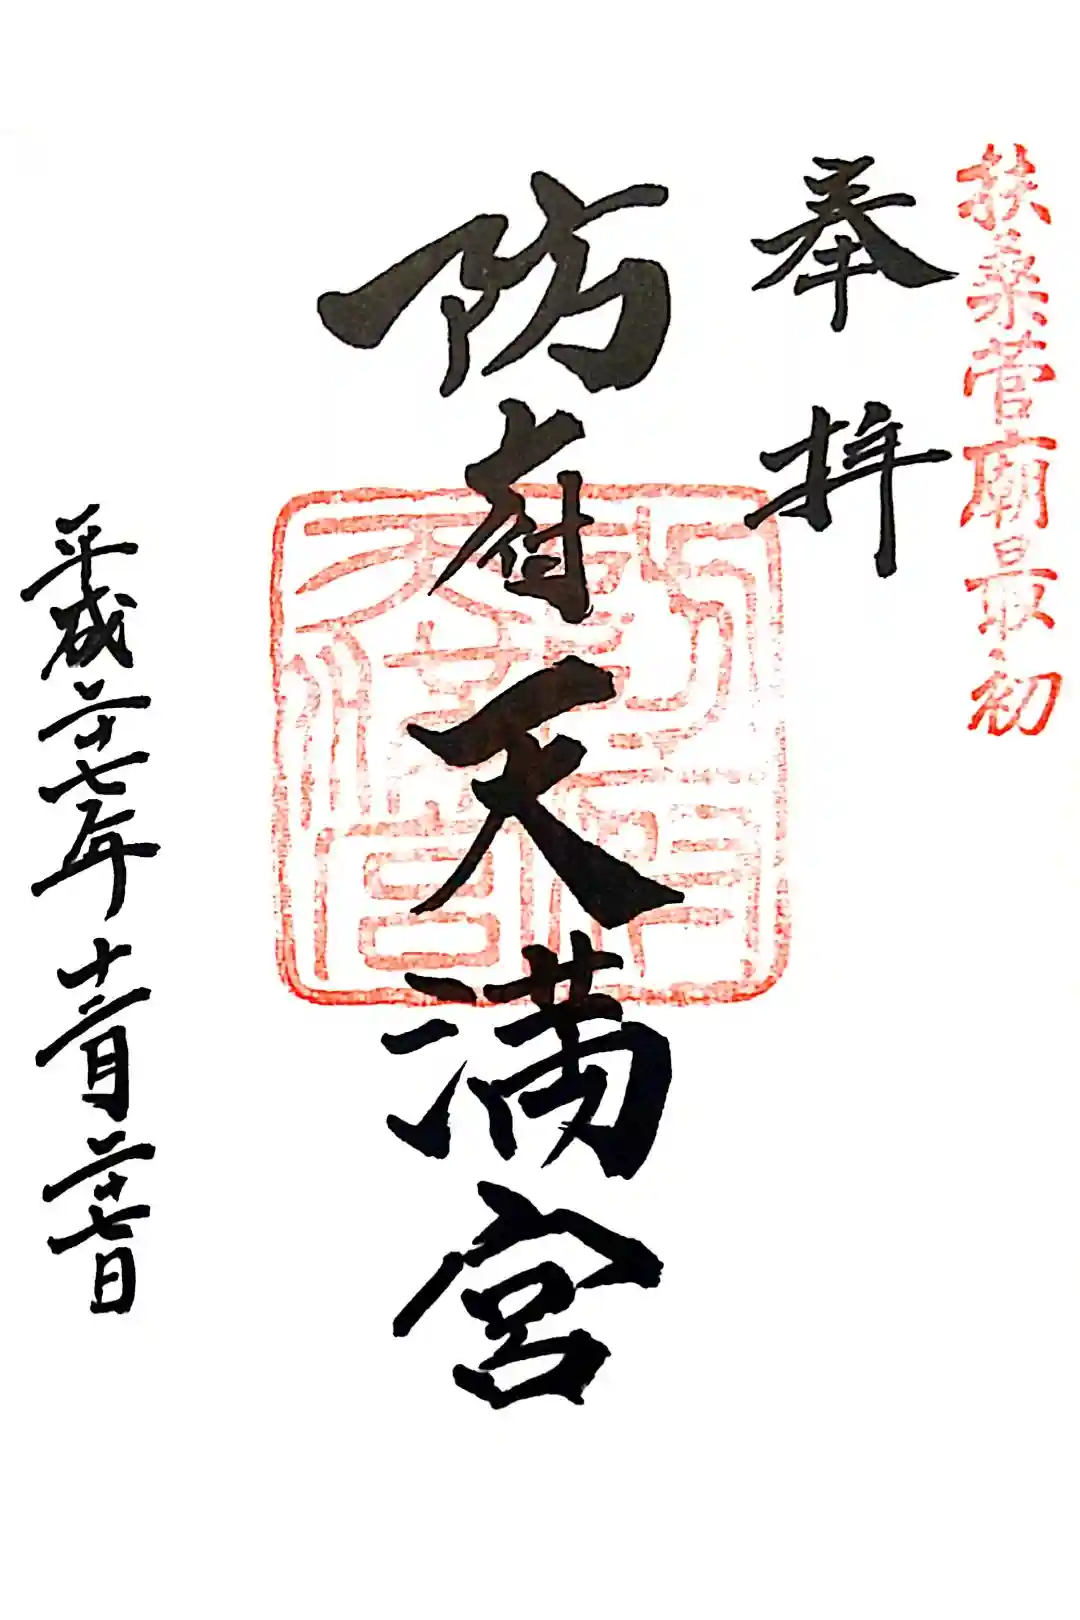 扶桑菅廟最初
奉拝
防府天満宮
平成二十七年十二月二十七日